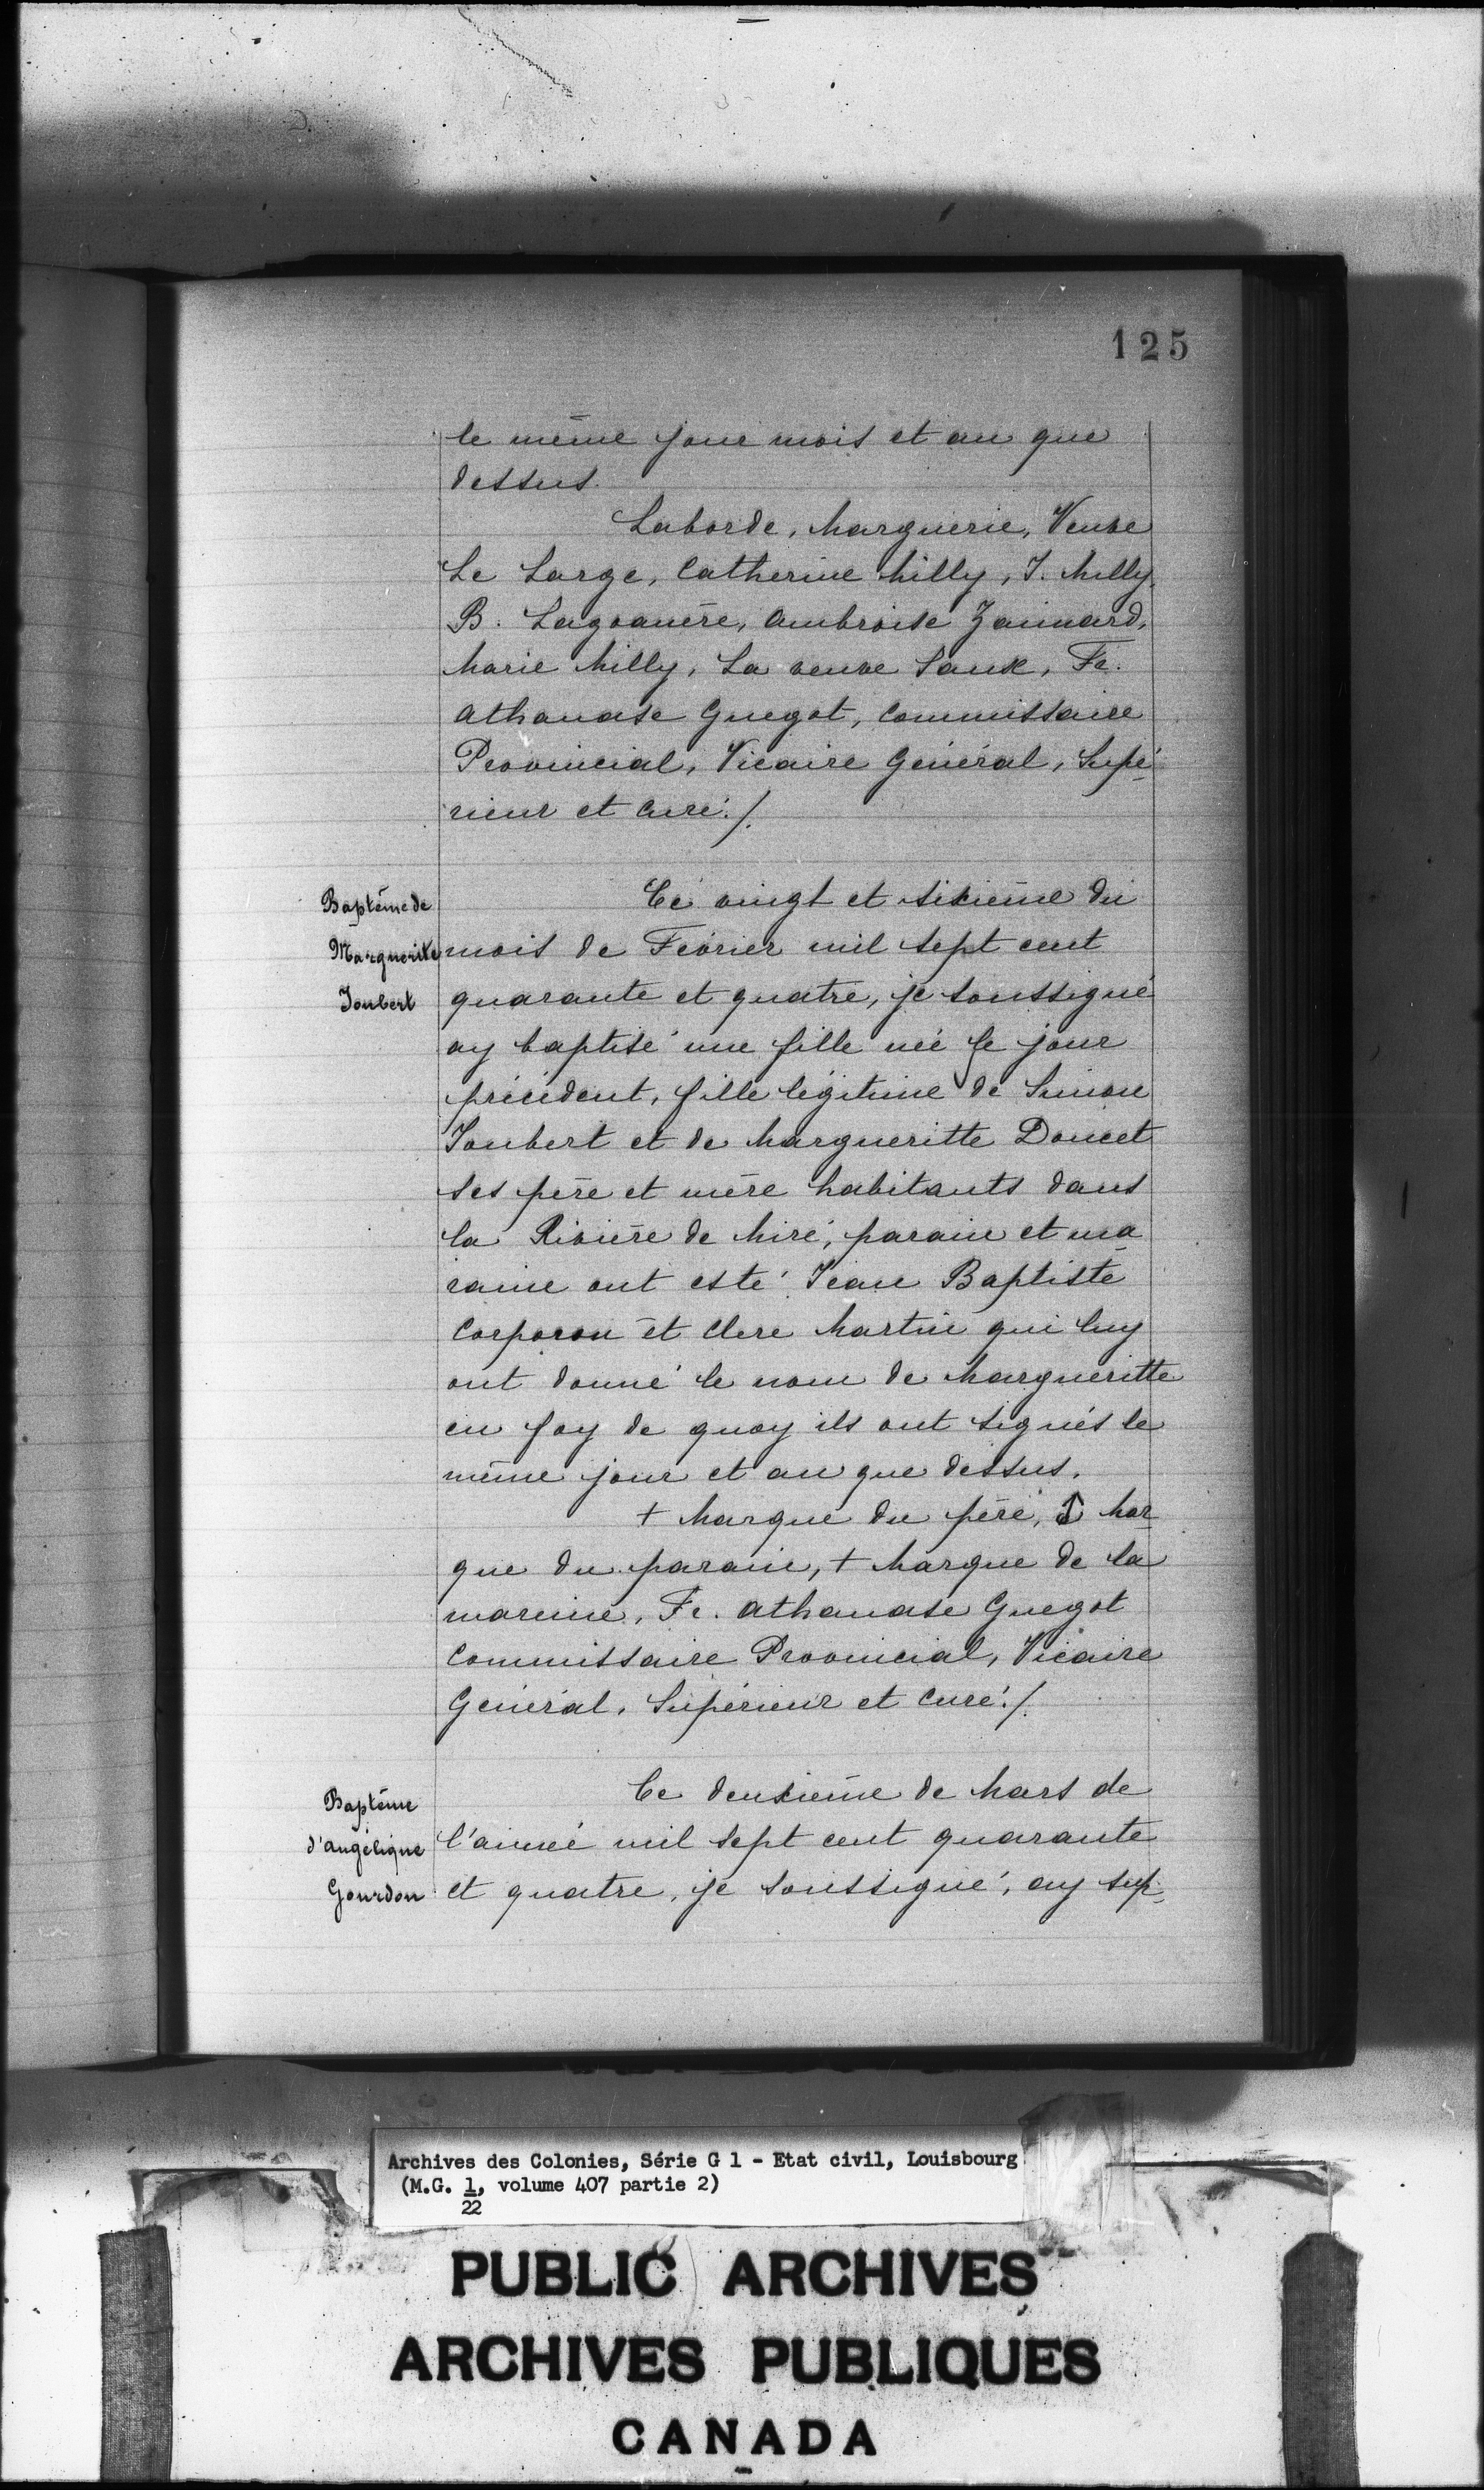 125
le même jour mois et an que
dessus.
Laborde, Marguerie, Veuve
Le Large, Catherine Milly, J. Milly,
B. Lagoanère, Ambroise
Marie Milly, La veuve Saux, Fr.
Athanase Guegot, Commissaire
Provincial, Vicaire Général, Supé-
rieur et Curé./.
Baptême de
Marguerite
Joubert
Ce vingt et sixième du
mois de Février mil sept cent
quarante et quatre, je soussigné
ay baptisé une fille née le jour
précédent, fille légitime de Simon
Joubert et de Margueritte Doucet
ses père et mère habitants dans
la Rivière de Miré, parain et ma-
raine ont esté Jean Baptiste
Corporon et Clere Martin qui luy
ont donné le nom de Margueritte
en foy de quoy ils ont signés le
même jour et an que dessus.
+ Marque du père, Mar-
que du parain, + Marque de la
mareine, Fr. Athanase Guegot
Commissaire Provincial, Vicaire
Général, Supérieur et Curé./.
Baptême
d'angélique
Gourdon
Ce deuxième de Mars de
l'année mil sept cent quarante
et quatre, je soussigné, ay sup-
Archives des Colonies, Série G 1 - Etat civil, Louisbourg
(M.G. 1, volume 407 partie 2)
22
PUBLIC ARCHIVES
ARCHIVES PUBLIQUES
CANADA